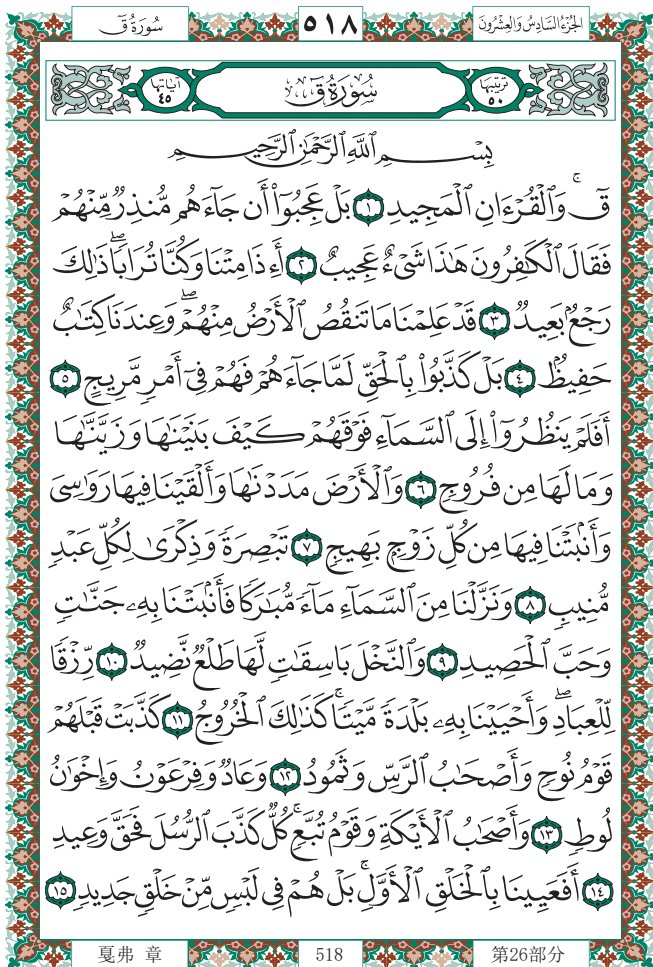 سُورَةُ قٓ ٥١٨ الجُزْءُ السَّادِسُ وَالعِشْرُونَ
آياتها ٤٥ سُورَةُ قٓ ترتيبها ٥٠
بِسْمِ ٱللَّهِ ٱلرَّحْمَٰنِ ٱلرَّحِيمِ
قٓۚ وَٱلْقُرْءَانِ ٱلْمَجِيدِ ١ بَلْ عَجِبُوٓا۟ أَن جَآءَهُم مُّنذِرٌ مِّنْهُمْ
فَقَالَ ٱلْكَٰفِرُونَ هَٰذَا شَىْءٌ عَجِيبٌ ٢ أَءِذَا مِتْنَا وَكُنَّا تُرَابًاۖ ذَٰلِكَ
رَجْعٌۢ بَعِيدٌ ٣ قَدْ عَلِمْنَا مَا تَنقُصُ ٱلْأَرْضُ مِنْهُمْۖ وَعِندَنَا كِتَٰبٌ
حَفِيظٌۢ ٤ بَلْ كَذَّبُوا۟ بِٱلْحَقِّ لَمَّا جَآءَهُمْ فَهُمْ فِىٓ أَمْرٍ مَّرِيجٍ ٥
أَفَلَمْ يَنظُرُوٓا۟ إِلَى ٱلسَّمَآءِ فَوْقَهُمْ كَيْفَ بَنَيْنَٰهَا وَزَيَّنَّٰهَا
وَمَا لَهَا مِن فُرُوجٍ ٦ وَٱلْأَرْضَ مَدَدْنَٰهَا وَأَلْقَيْنَا فِيهَا رَوَٰسِىَ
وَأَنۢبَتْنَا فِيهَا مِن كُلِّ زَوْجٍۭ بَهِيجٍ ٧ تَبْصِرَةً وَذِكْرَىٰ لِكُلِّ عَبْدٍ
مُّنِيبٍ ٨ وَنَزَّلْنَا مِنَ ٱلسَّمَآءِ مَآءً مُّبَٰرَكًا فَأَنۢبَتْنَا بِهِۦ جَنَّٰتٍ
وَحَبَّ ٱلْحَصِيدِ ٩ وَٱلنَّخْلَ بَاسِقَٰتٍ لَّهَا طَلْعٌ نَّضِيدٌ ١٠ رِّزْقًا
لِّلْعِبَادِۖ وَأَحْيَيْنَا بِهِۦ بَلْدَةً مَّيْتًاۚ كَذَٰلِكَ ٱلْخُرُوجُ ١١ كَذَّبَتْ قَبْلَهُمْ
قَوْمُ نُوحٍ وَأَصْحَٰبُ ٱلرَّسِّ وَثَمُودُ ١٢ وَعَادٌ وَفِرْعَوْنُ وَإِخْوَٰنُ
لُوطٍ ١٣ وَأَصْحَٰبُ ٱلْأَيْكَةِ وَقَوْمُ تُبَّعٍۚ كُلٌّ كَذَّبَ ٱلرُّسُلَ فَحَقَّ وَعِيدِ
١٤ أَفَعَيِينَا بِٱلْخَلْقِ ٱلْأَوَّلِۚ بَلْ هُمْ فِى لَبْسٍ مِّنْ خَلْقٍ جَدِيدٍ ١٥
戛弗 章 518 第26部分